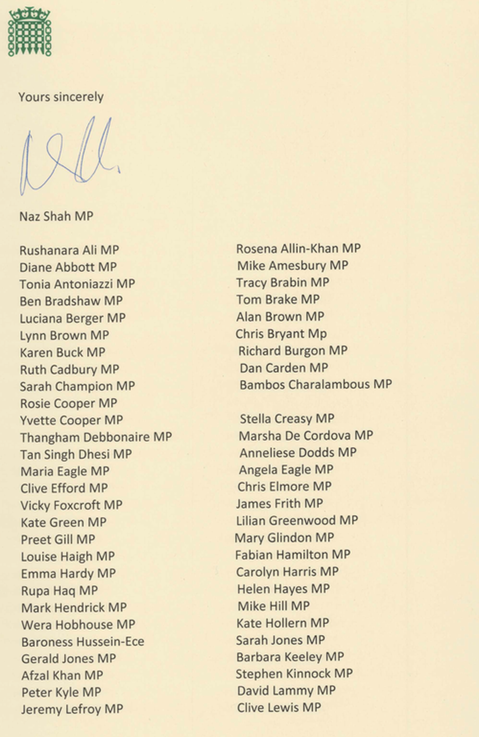 Yours sincerely
Naz Shah MP
Rushanara Ali MP Rosena Allin-Khan MP
Diane Abbott MP Mike Amesbury MP
Tonia Antoniazzi MP Tracy Brabin MP
Ben Bradshaw MP Tom Brake MP
Luciana Berger MP Alan Brown MP
Lynn Brown MP Chris Bryant Mp
Karen Buck MP Richard Burgon MP
Ruth Cadbury MP Dan Carden MP
Sarah Champion MP Bambos Charalambous MP
Rosie Cooper MP
Yvette Cooper MP Stella Creasy MP
Thangham Debbonaire MP Marsha De Cordova MP
Tan Singh Dhesi MP Anneliese Dodds MP
Maria Eagle MP Angela Eagle MP
Clive Efford MP Chris Elmore MP
Vicky Foxcroft MP James Frith MP
Kate Green MP Lilian Greenwood MP
Preet Gill MP Mary Glindon MP
Louise Haigh MP Fabian Hamilton MP
Emma Hardy MP Carolyn Harris MP
Rupa Haq MP Helen Hayes MP
Mark Hendrick MP Mike Hill MP
Wera Hobhouse MP Kate Hollern MP
Baroness Hussein-Ece Sarah Jones MP
Gerald Jones MP Barbara Keeley MP
Afzal Khan MP Stephen Kinnock MP
Peter Kyle MP David Lammy MP
Jeremy Lefroy MP Clive Lewis MP